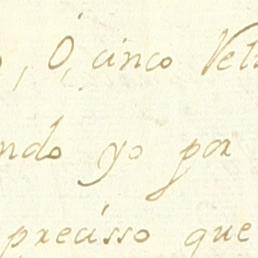 , Ó, cinco
ndo yo por
precisso que